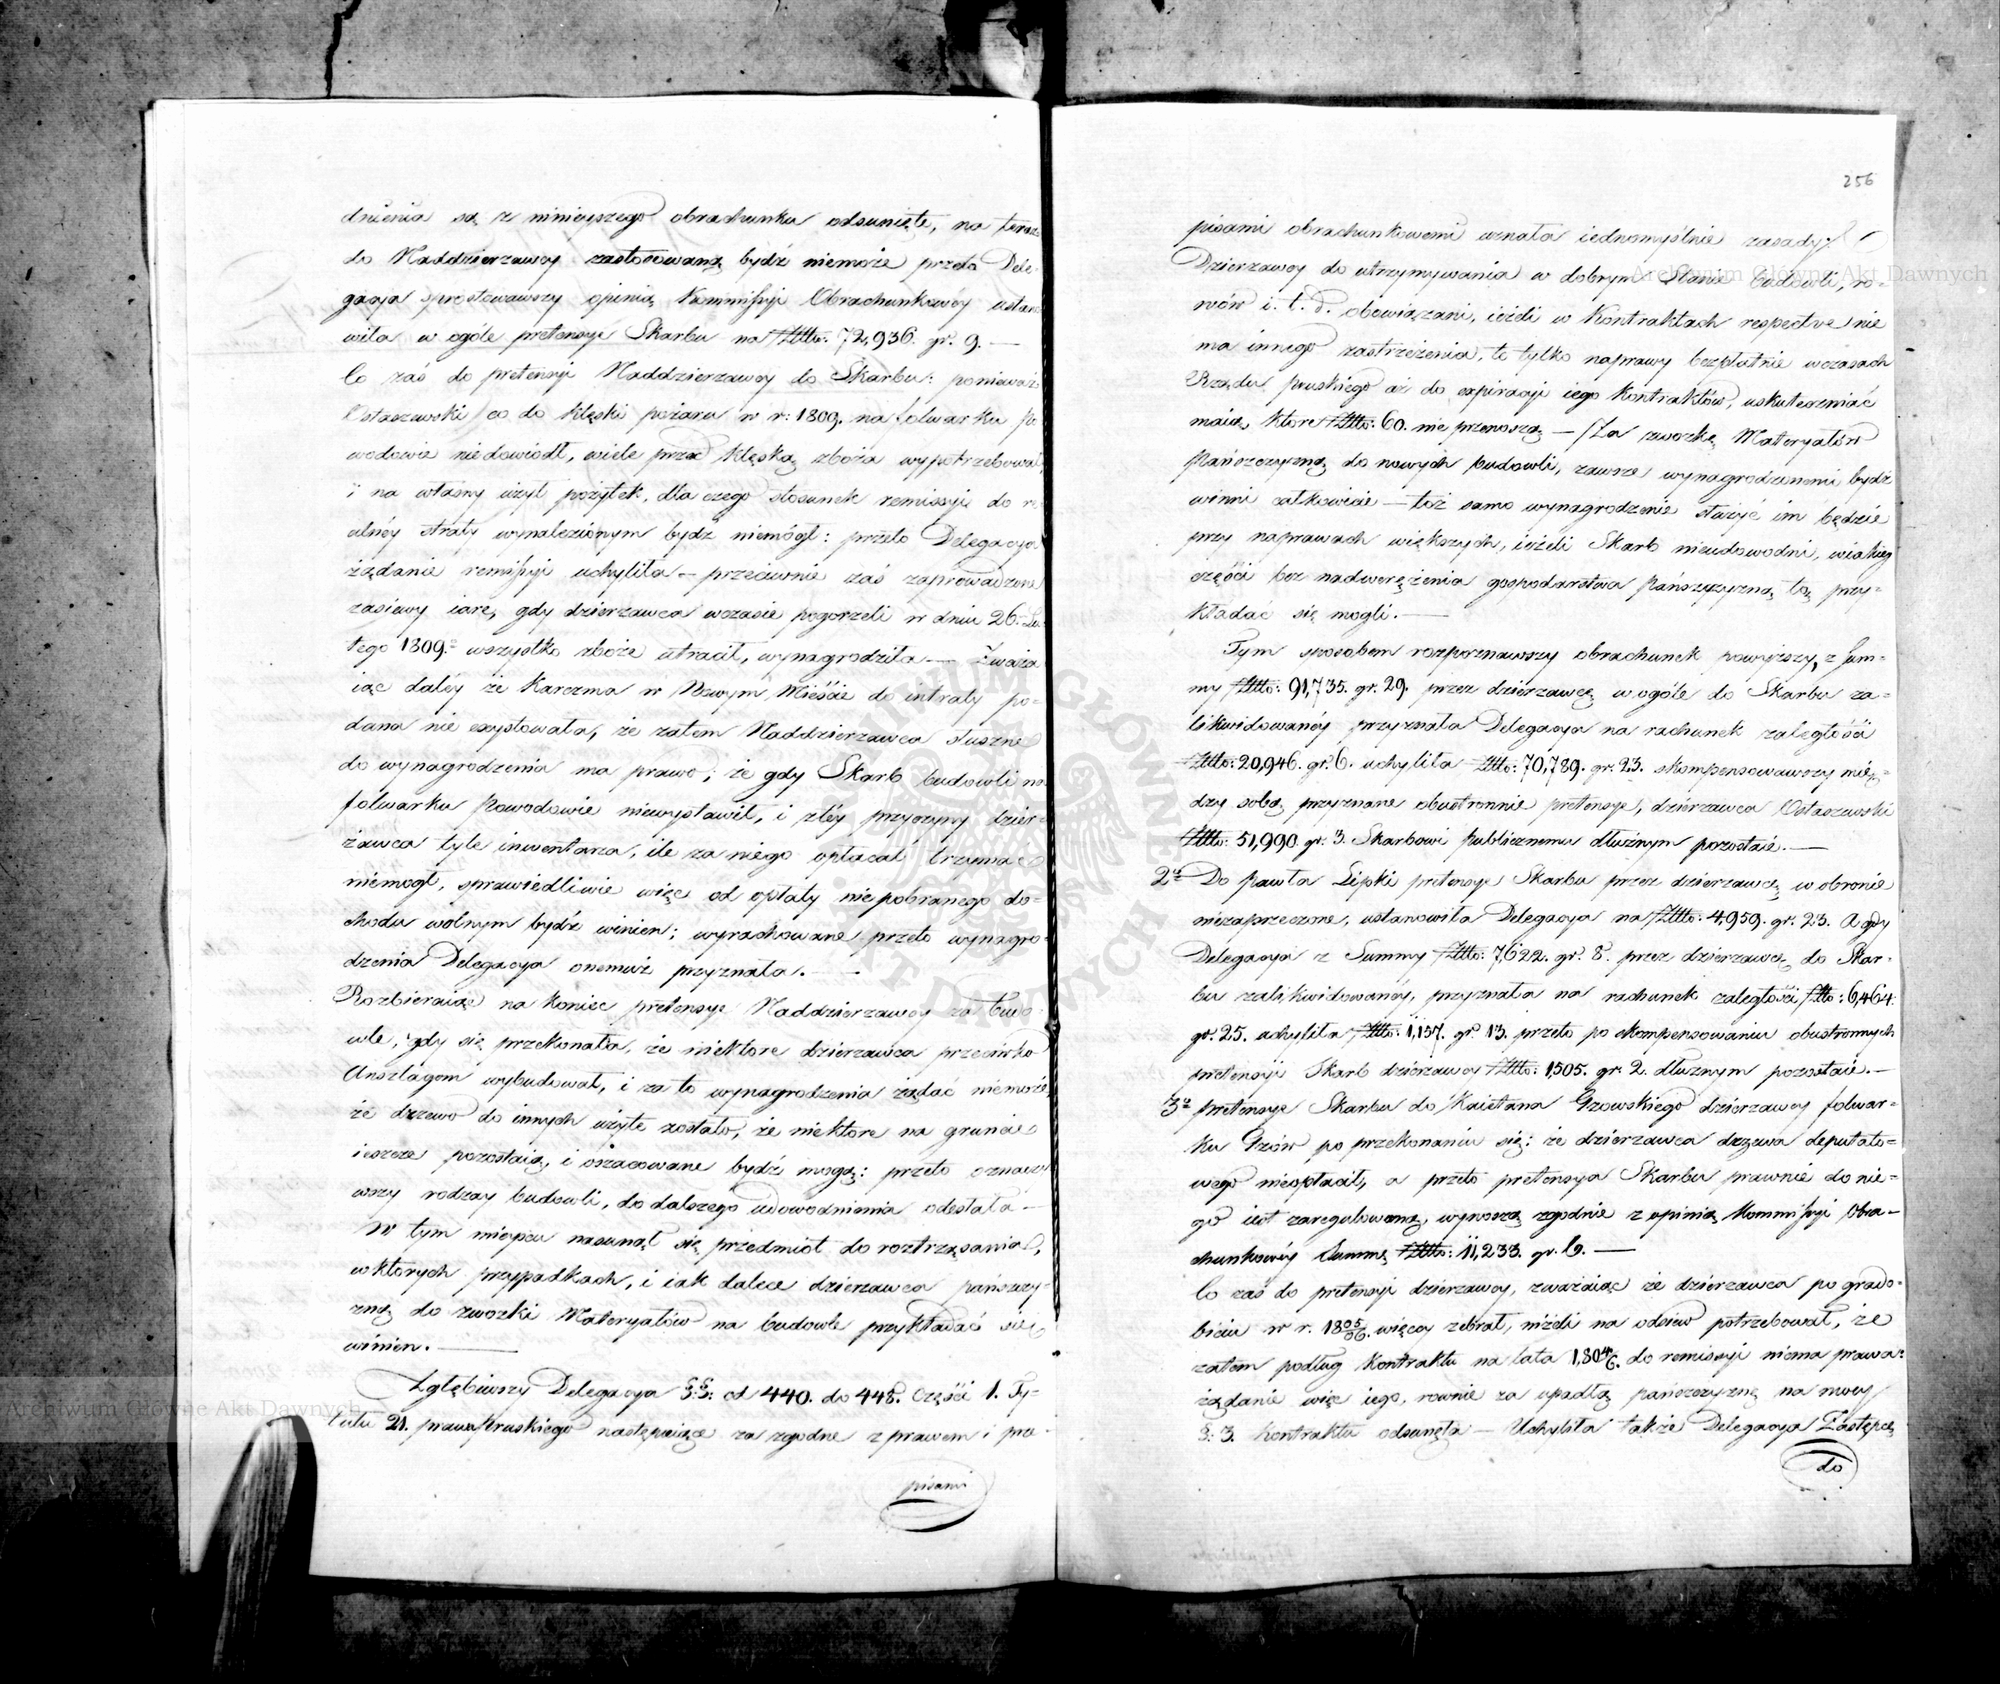 dnienia są z ninieyszego obrachunku odsunięte, na teraz
do Naddzierzawcy zastosowaną bydź niemoże przeto Dele-
gacya sprostowawszy opinią Kommissyi Obrachunkowéy ustano
wiła w ogóle pretensye Skarbu na Złtto: 72,936. gr. 9. —
Co zaś do pretensyi Naddzierzawcy do Skarbu: ponieważ
Ostaszewski co do klęski pożaru w r: 1809. na folwarku Po
wodowie niedowiódł, wiele przed klęską zboża wypotrzebował,
i na własny użył pożytek, dla czego stosunek remissyi do re
alnéy straty wynalezionym bydź niemógł: przeto Delegacya
żądanie remissyi uchyliła — przeciwnie zaś zaprowadzone
zasiewy iare, gdy dzierzawca wczasie pogorzeli w dniu 26. Lu
tego 1809. wszystko zboże utracił, wynagrodziła — Zważa
iąc daléy że Karczma w Nowym Mieście do intraty po-
dana nie exystowała, że zatem Naddzierzawca słuszne
do wynagrodzenia ma prawo; że gdy Skarb budowli na
folwarku Powodowie niewystawił, i z téy przyczyny dzier-
żawca tyle inwentarza, ile za niego opłacał trzymać
niemogł, sprawiedliwie więc od opłaty niepobranego do-
chodu wolnym bydź winien; wyrachowane przeto wynagro-
dzenia Delegacya onemuż przyznała. —
Rozbieraiąc na koniec pretensye Naddzierzawcy za budo-
wle, gdy się przekonała, że niektore dzierzawca przeciwko
Anszlagom wybudował, i za to wynagrodzenia żądać niemoże,
że drzewo do innych użyte zostało, że niektóre na gruncie
ieszcze pozostaią, i oszacowane bydź mogą: przeto oznaczy
wszy rodzay budowli, do dalszego udowodnienia odesłała —
W tym mieyscu nasunął się przedmiot do roztrząsania,
w których przypadkach, i iak dalece dzierzawca pańszczy-
zną do zwózki Materyałów na budowle przykładać się
winien. —
Zgłębiwszy Delegacya §:§: od 440. do 448. Części 1. Ty-
tułu 21. prawa pruskiego następuiące za zgodne z prawem i prze-
pisami
256
pisami obrachunkowemi uznała iednomyślnie zasady:
Dzierzawcy do utrzymywania w dobrym Stanie budowli, ro-
wów i. t. d. obowiązani, ieżeli w Kontraktach respective nie
ma innego zastrzeżenia, te tylko naprawy bezpłatnie wczasach
Rządu pruskiego aż do expiracyi iego Kontraktów, uskuteczniać
maią, ktore Złtto: 60. nie przenoszą — Za zwozkę Materyałów
Pańszczyzną do nowych budowli, zawsze wynagrodzonemi bydź
winni całkowicie — toż samo wynagrodzenie służyć im będzie
przy naprawach większych, ieżeli Skarb nieudowodni, wiakiey
części bez nadwerężenia gospodarstwa Pańszczyzną tą przy-
kładać się mogli. —
Tym sposobem rozpoznawszy obrachunek powyższy, z Sum-
my Złtto: 91,735. gr. 29. przez dzierzawcę w ogóle do Skarbu za-
likwidowanéy przyznała Delegacya na rachunek zaległości
Złtto: 20,946. gr. 6. uchyliła Złtto: 70,789. gr. 23. skompensowawszy mię-
dzy sobą przyznane obustronnie pretensye, dzierzawca Ostaszewski
Złtto: 51,990. gr. 3. Skarbowi Publicznemu dłużnym pozostaie. —
2° Do Pawła Lipki pretensye Skarbu przez dzierzawcę w obronie
niezaprzeczone, ustanowiła Delegacya na Złtto: 4,959. gr. 23. A gdy
Delegacya z Summy Złtto: 7,622. gr. 8. przez dzierzawcę do Skar-
bu zalikwidowanéy, przyznała na rachunek zaległości Złtto: 6,464.
gr. 25. uchyliła Złtto: 1,157. gr. 13. przeto po skompensowaniu obustronnych
pretensyi Skarb dzierzawcy Złtto: 1,505. gr. 2. dłużnym pozostaie. —
3° Pretensye Skarbu do Kaietana Gzowskiego dzierzawcy folwar-
ku Gzów po przekonaniu się: że dzierzawca drzewa deputato-
wego nieopłacił, a przeto pretensya Skarbu prawnie do nie-
go iest zaregulowaną, wynoszą zgodnie z opinią Kommissyi Obra-
chunkowéy Summę Złtto: 11,233. gr.
Co zaś do pretensyi dzierzawcy, zważaiąc że dzierzawca po grado-
biciu w r. 1805/06. więcey zebrał, niżeli na odsiew potrzebował, że
zatem podług Kontraktu na lata 1,804/6. do remissyi niema prawa:
żądanie więc iego, rownie za upadłą pańszczyznę na mocy
§: 3. Kontraktu odsunęła — Uchyliła także Delegacya Zastępcę
do
Archiwum Główne Akt Dawnych
Archiwum Główne Akt Dawnych
ARCHIWUM GŁÓWNE AKT DAWNYCH